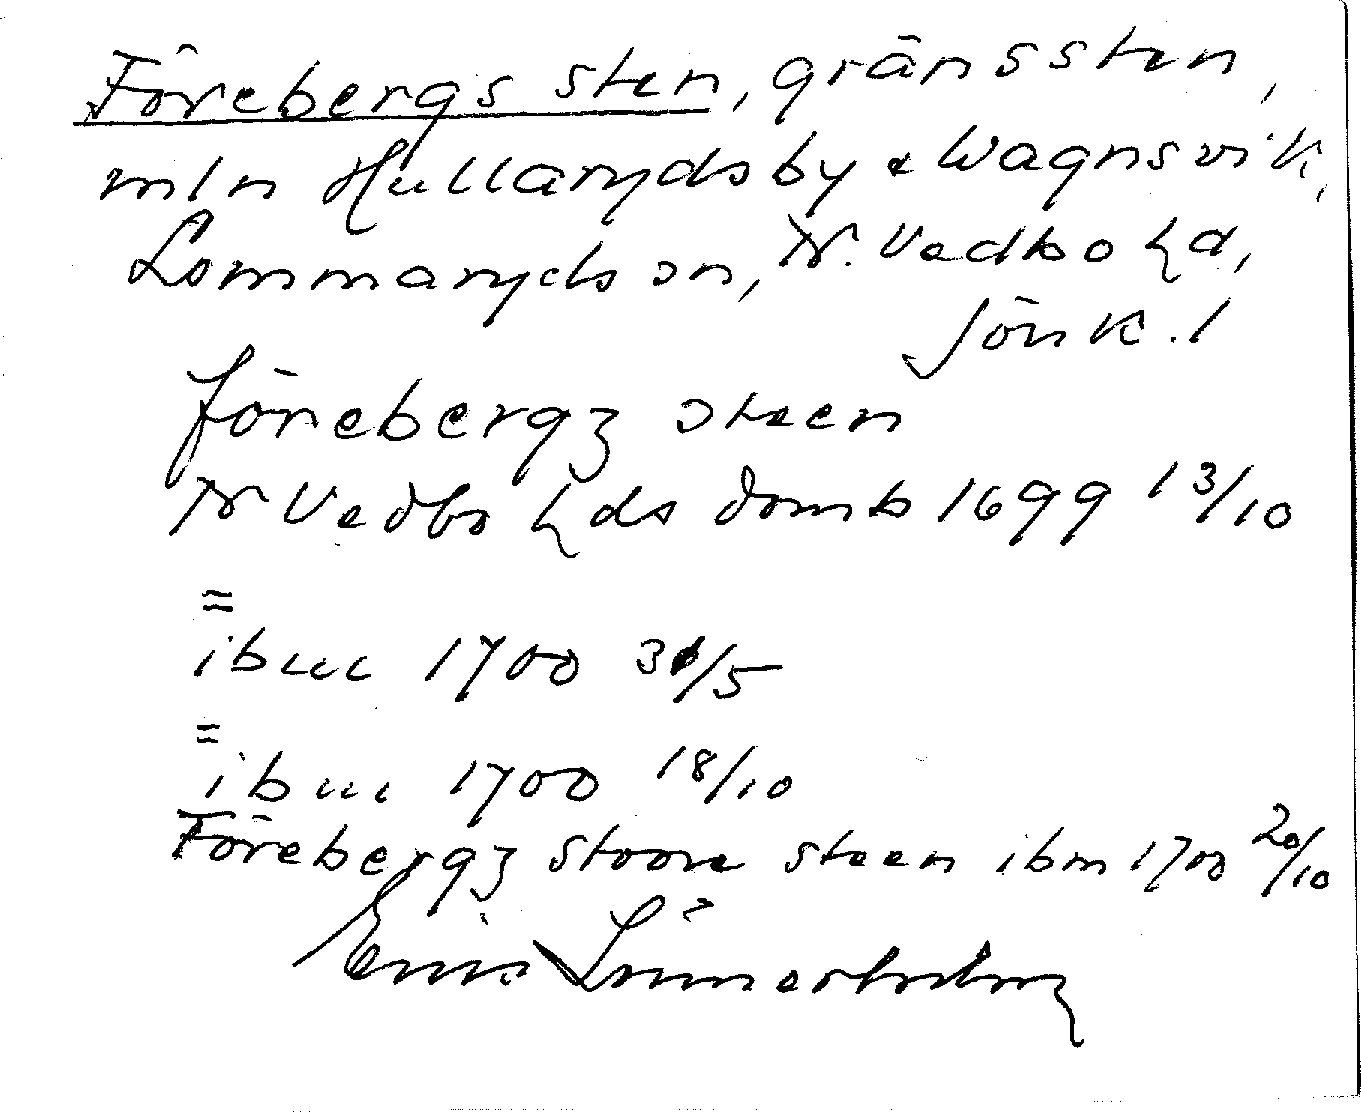 Förebergs sten, gränssten,
mln Hullarydsby & Wagnsvik,
Lommaryds sn, N. Vedbo hd,
Jönk. l
förebergz steen
N Vedbo hds domb 1699 13/10
=
ibm 1700 31/5
=
ibm 1700 18/10
Förebergz stoore steen ibm 1700 20/10